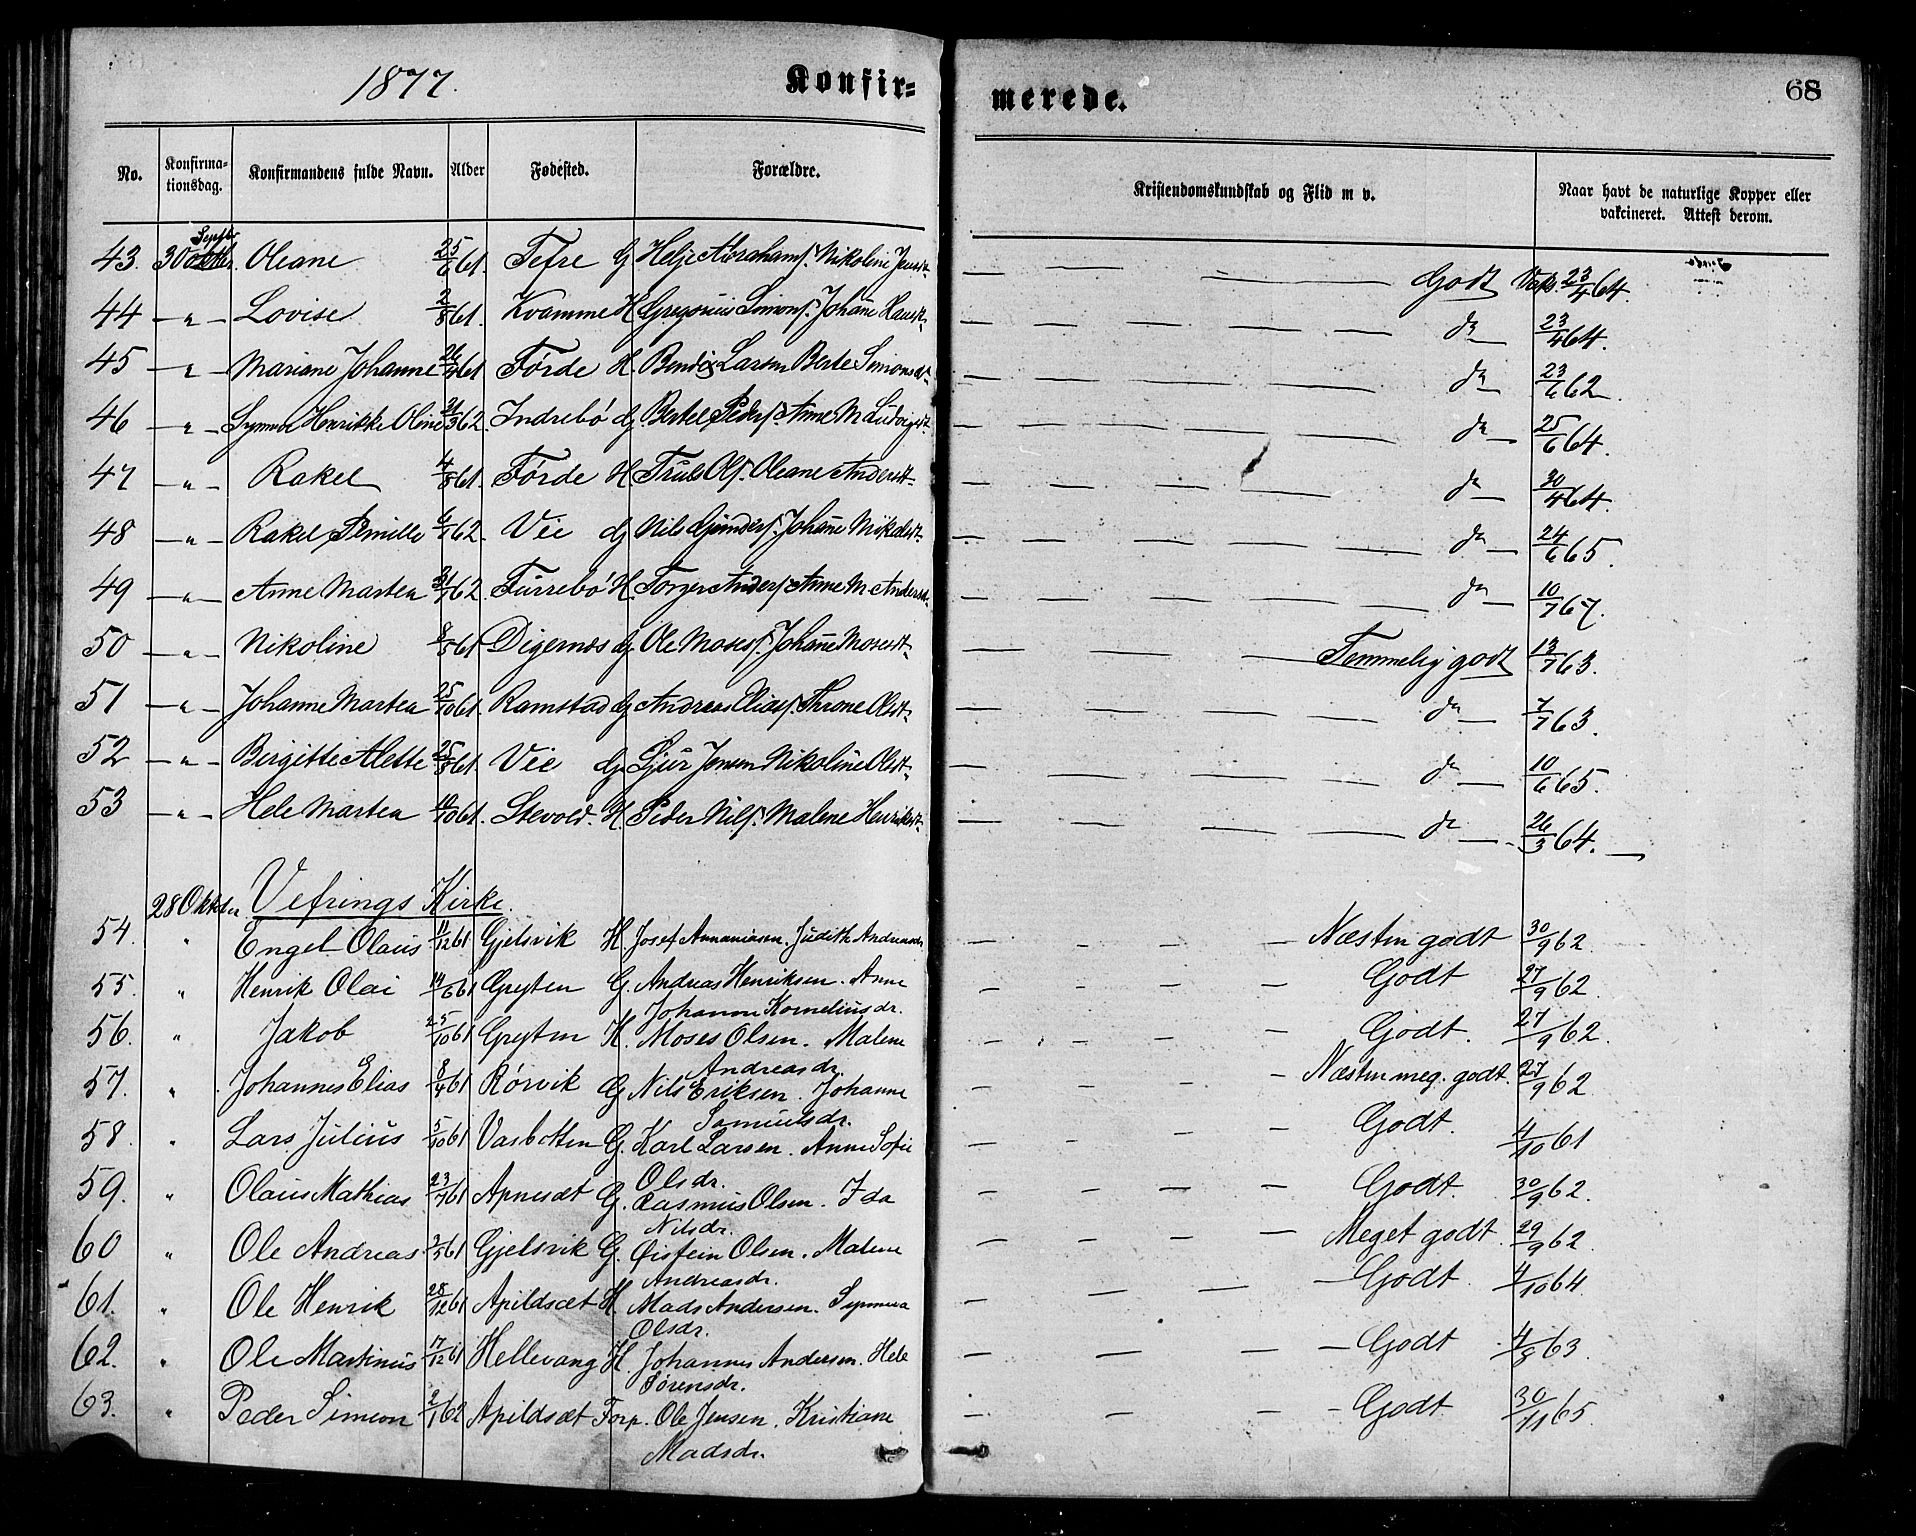 1877. Konfir-
merede. 68
No. Konfirma-tionsdag. Konfirmandens fulde Navn. Alder Fødested. Forældre. Kristendomskundskab og Flid m v. Naar havt de naturlige Kopper eller vakcineret. Attest derom.
Septbr
43. 30 Oleane 25/6 61. Tefre G Helje Abrahams. Nikoline Jensdt. — — — Godt Vaks. 23/4 64.
44 — " — Lovise 2/8 61. Kvamme H Gregorius Simons. Johane Hansdt. — — — — do — 23/4 64.
45 — " — Mariane Johanne 26/ 61 Førde H. Bendix Larsen Berte Simonsdt. — — — — do — 23/6 62.
46 — " — Synneve Henrikke Oline /3 62. Indrebö G. Bertel Peders. Anne M Ludvigsdt. — — — — do — 25/6 64.
47 — " — Rakel 4/8 61. Førde H Truls Ols. Oleane Andersdt. — — — — do — 30/4 64.
48 — " — Rakel Pernille 6/7 62. Vie G Nils Gunders. Johane Mikelsdt. — — — — do — 24/6 65.
49 — " — Anne Martea 62 Furrebö H. Torger Anders. Anne M. Andersdt. — — — — do — 10/7 67.
50 — " — Nikoline 8/5 61 Digernes G Ole Moses. Johane Mosesdt. — — — Temmelig godt 13/7 63.
51 — " — Johanne Martea 25/10 61. Ramstad G Andreas Elias. Throne Olsdt. — — — — do — 7/7 63.
52 — " — Birgitte Alette 25/8 61. Vie G. Sjur Jensen Nikoline Olsdt. — — — — do — 10/6 65.
53 — " — Hele Martea /10 61. Stevold. H. Peder Nils. Malene Henriksdt. — — — — do — 26/3 64. —
28 Oktober Vefrings Kirke.
54. " Engel Olaus 11/12 61 Gjelsvik H. Josef Annaniasen. Judith Andreasdr. - - - - Næsten godt 30/9 62.
55. " Henrik Olai 14/6 61 Grytten G. Andreas Henriksen. Anne - - - - Godt 27/9 62.
Johanne Korneliusdr.
56. " Jakob 25/10 61 Grytten H. Moses Olsen. Malene - - - - Godt. 27/9 62.
Andreasdr.
57. " Johannes Elias 8/4 61 Rørvik G Nils Eriksen. Johanne - - - - Næsten meg. godt. 27/9 62
Samuelsdr.
58. " Lars Julius 5/10 61 Vasbotten G. Karl Larsen. Anne Sofie - - - - Godt. 4/10 61
Olsdr.
59. " Olaus Mathias 23/7 61 Apnesæt G. Rasmus Olsen. Ida - - - - Godt. 30/9 62.
Nilsdr.
60 " Ole Andreas /5 61 Gjelsvik G. Øistein Olsen. Malene - - - - Meget godt. 29/9 62.
Andreasdr.
61. " Ole Henrik 28/12 61 Apildsæt H. Mads Andersen. Synneva - - - - Godt. 4/10 64
Olsdr.
62. " Ole Martinus 17/12 61 Hellevang H. Johannes Andersen. Hele - - - Godt 4/8 63.
Sørensdr.
63. " Peder Simeon 2/1 62 Apildsæt Forp. Ole Jensen. Kristiane - - - - Godt 30/11 65.
Madsdr.